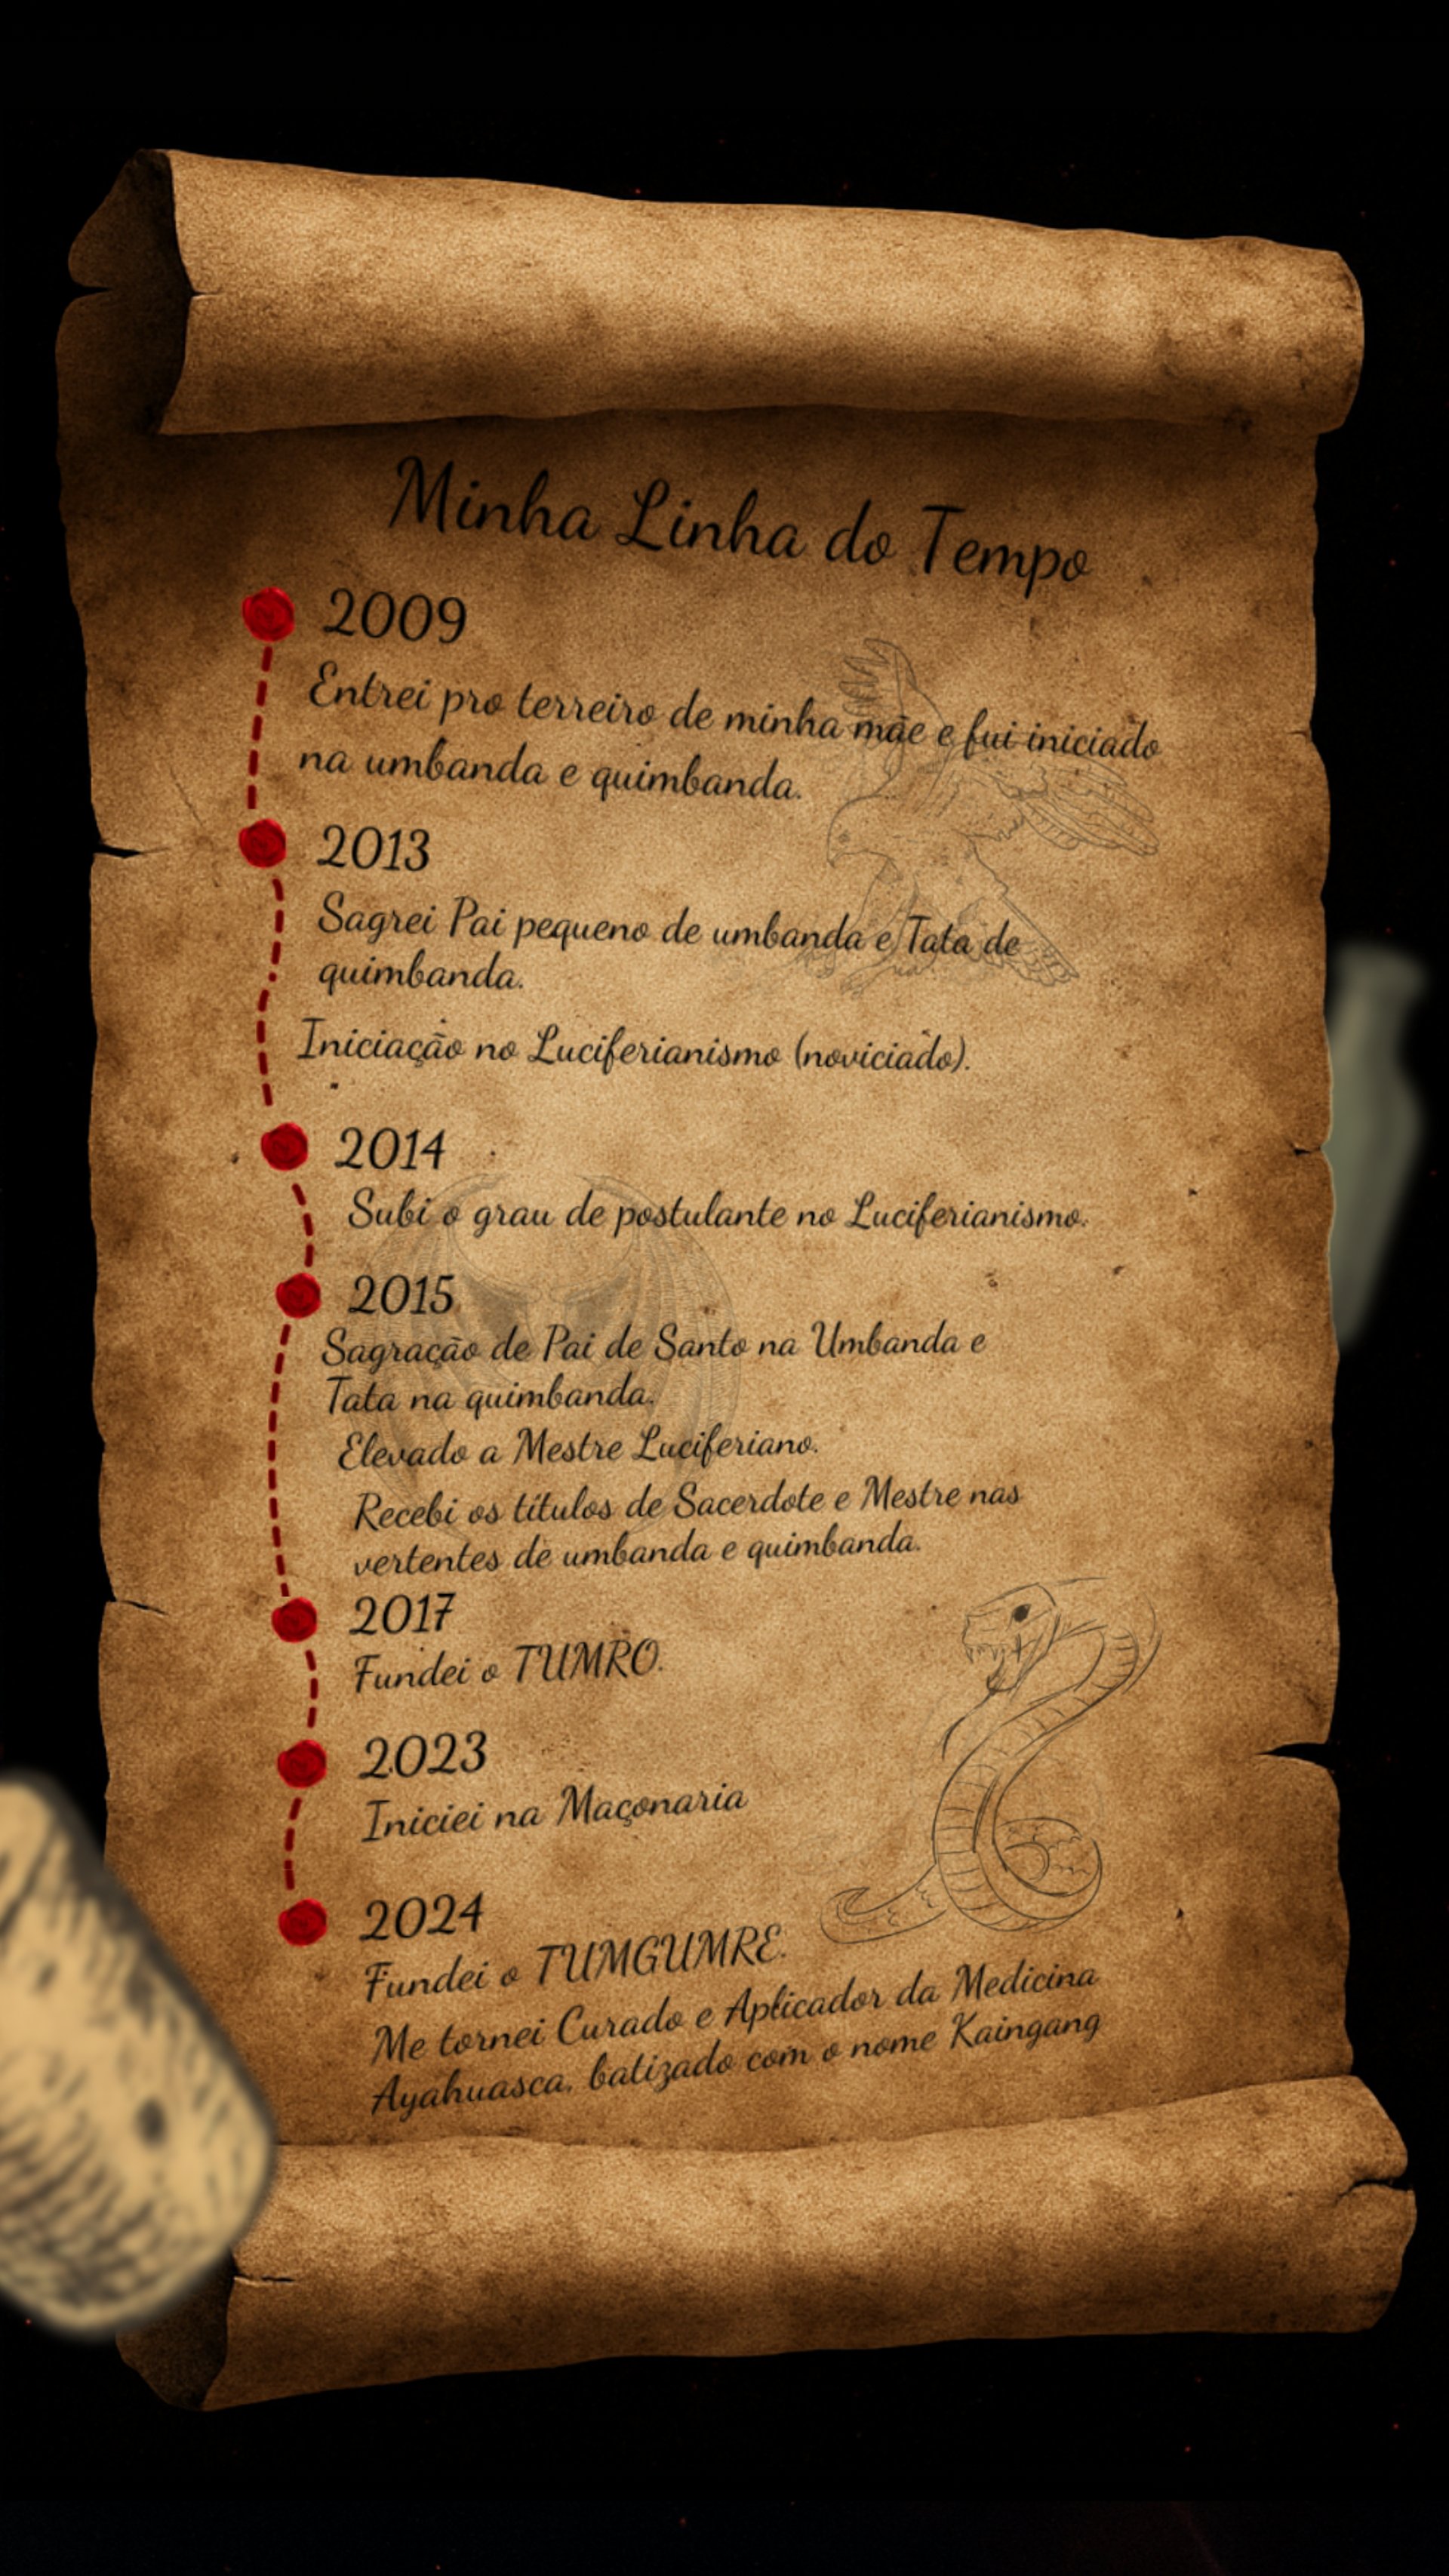 Minha Linha do Tempo
2009
Entrei pro terreiro de minha mãe e fui iniciado
na umbanda e quimbanda.
2013
Sagrei Pai pequeno de umbanda e Tata de
quimbanda.
Iniciação no Luciferianismo (noviciado).
2014
Subi o grau de postulante no Luciferianismo.
2015
Sagração de Pai de Santo na Umbanda e
Tata na quimbanda.
Elevado a Mestre Luciferiano.
Recebi os títulos de Sacerdote e Mestre nas
vertentes de umbanda e quimbanda.
2017
Fundei o TUMRO.
2023
Iniciei na Maçonaria
2024
Fundei o TUMGUMRE.
Me tornei Curado e Aplicador da Medicina
Ayahuasca, batizado com o nome Kaingang